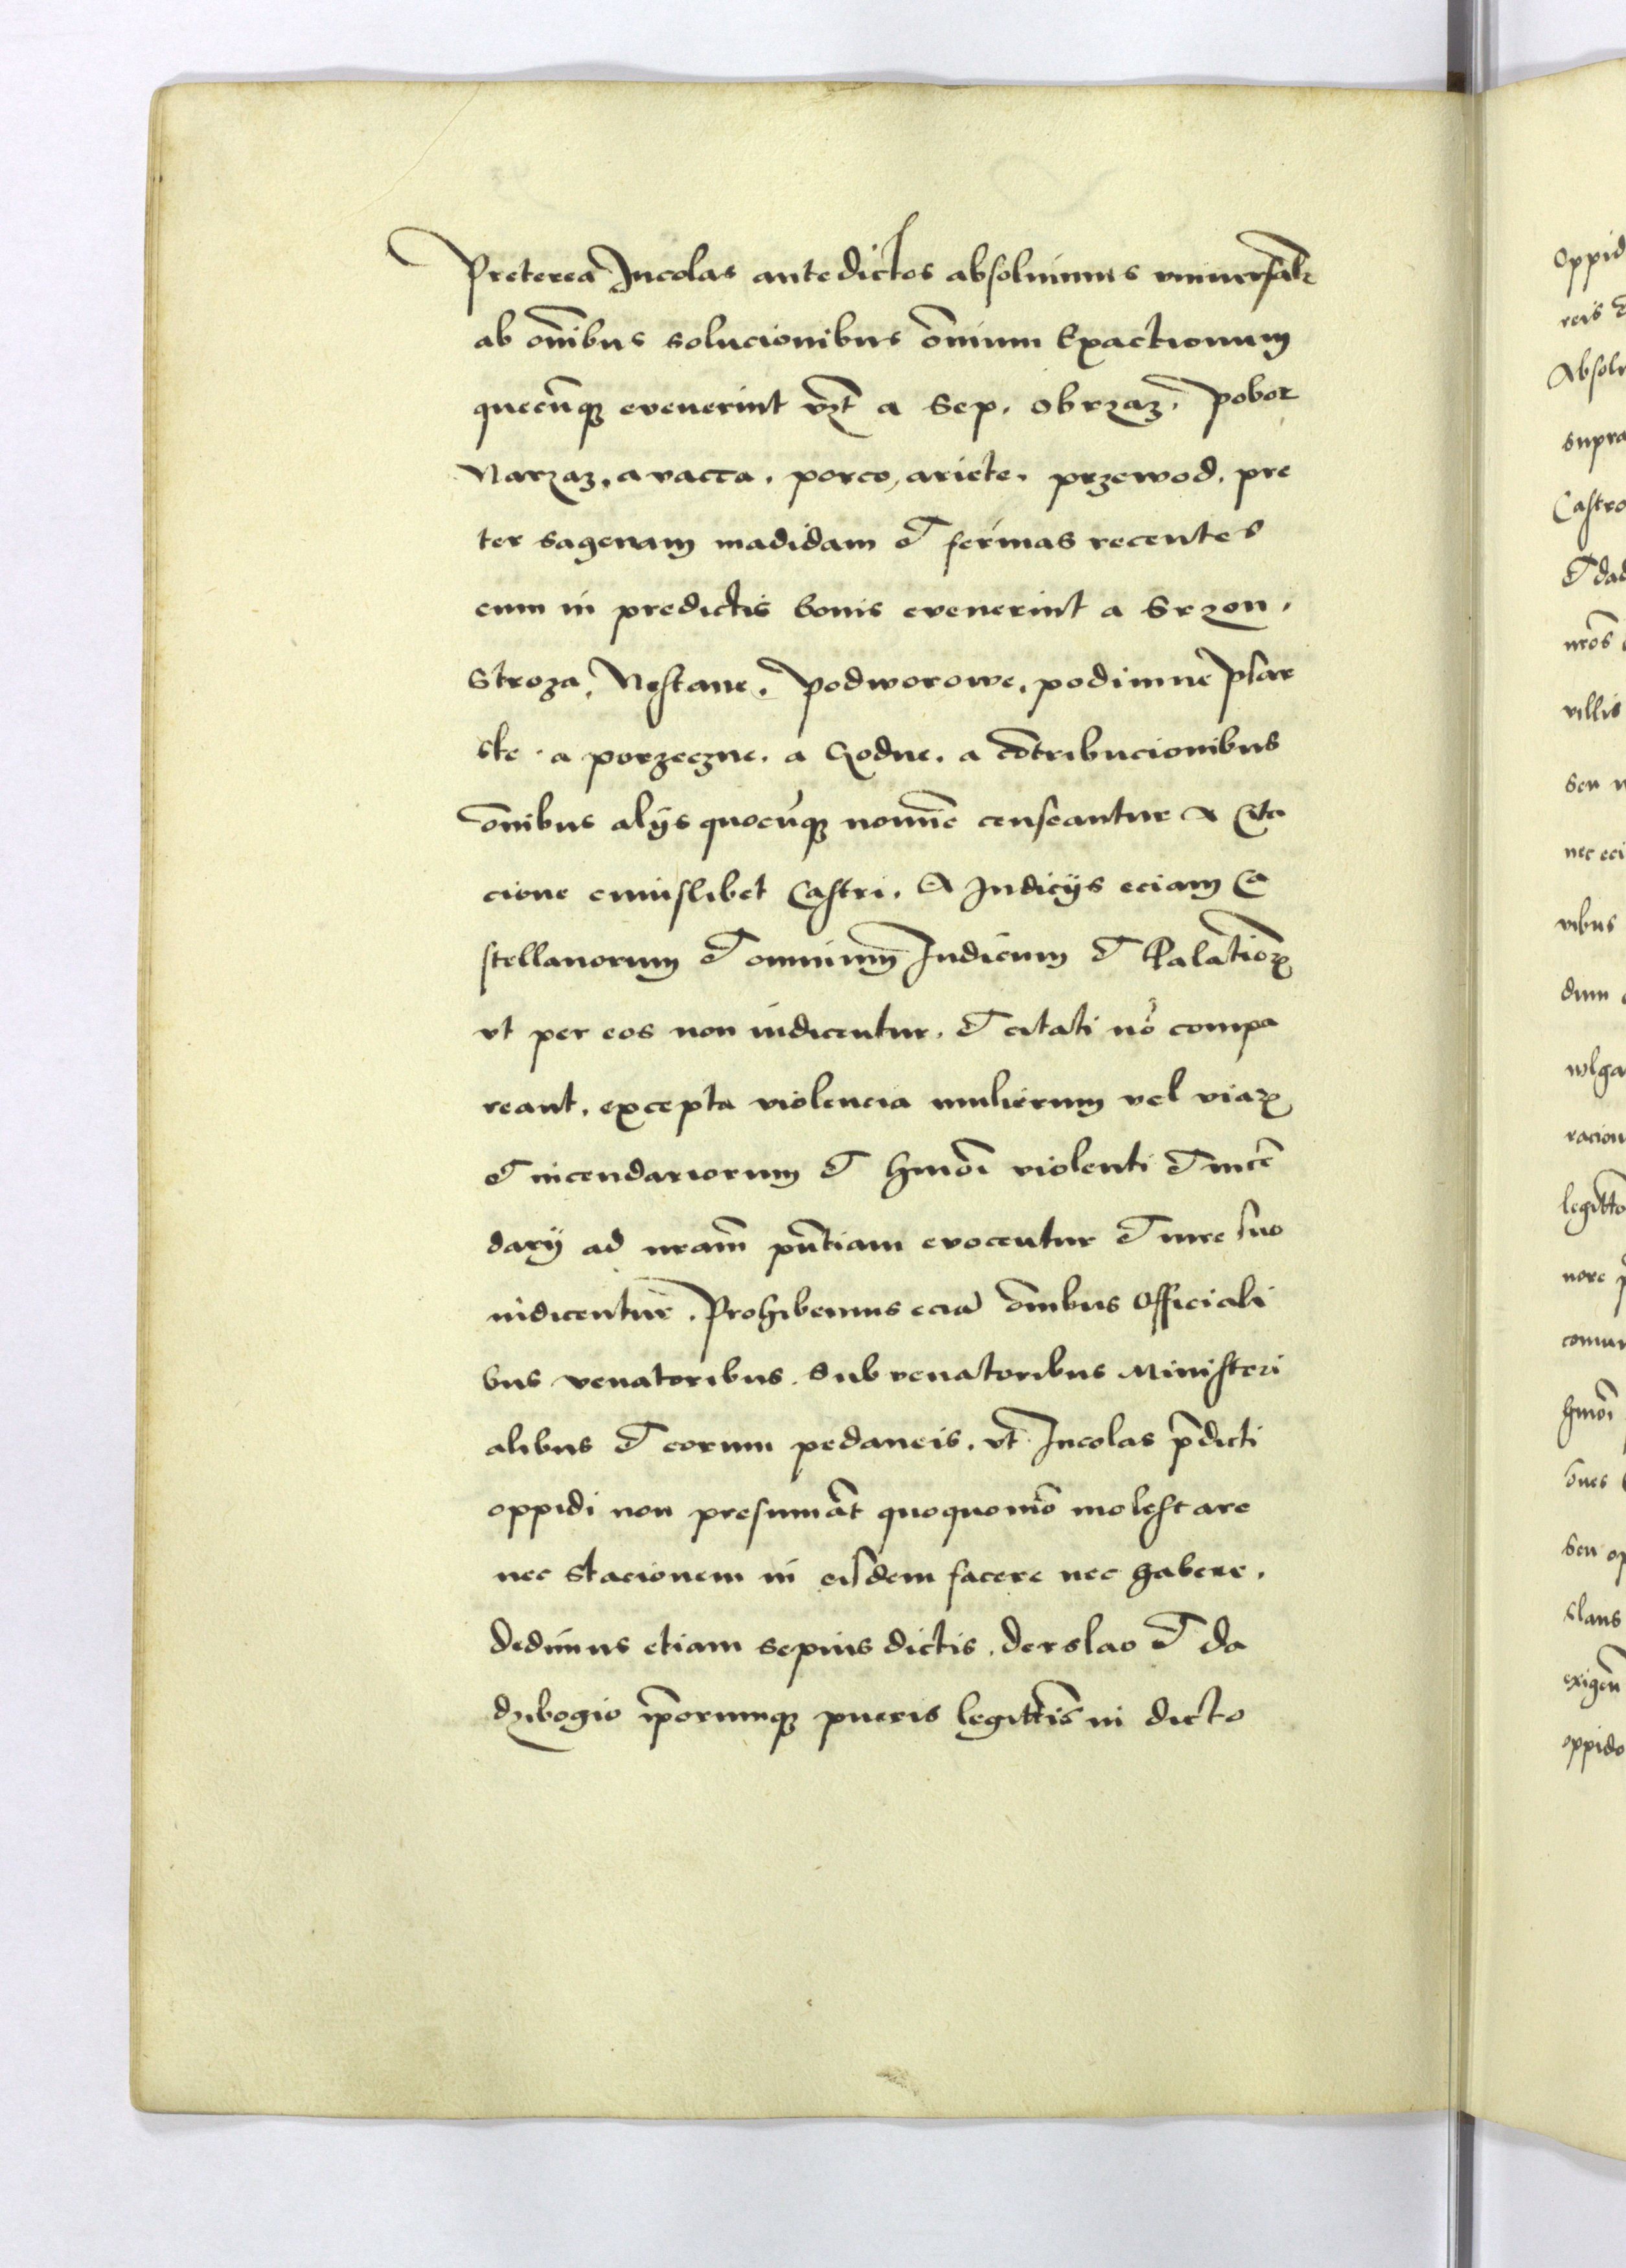 Preterea Incolas antedictos absoluimus vniuersalr
ab om̄ibus solucionibus om̄ium Exactionum
quecūq̨ evenerint vzt a Sep. obrzaz. pobor
Narzaz. a vacca. porco, ariete. przewod. pre
ter sagenam madidam et ferinas recentes
cum in predictis bonis evenerint a Srzon.
Stroza, Nestane. Podworowe. podimne psar
ske. a porzeczne. a Godne. a cōtribucionibus
om̄ibus alijs quocūq̨ nomīe censeantur A Cita
cione cuiuslibet Castri. A Iudicijs eciam Ca
stellanorum et omnium Iudicum et Palatioꝝ
vt per eos non iudicentur. et citati nō compa
reant. excepta violencia mulierum vel viaꝝ
et incendariorum et hmōi violenti et incē
darij ad nrām pn̄tiam evocentur et iure suo
iudicentur. Prohibemus eciā om̄ibus Officiali
bus venatoribus. Subvenatoribus Ministeri
alibus et eorum pedaneis. vt Incolas p̄dicti
oppidi non presumāt quoquomō molestare
nec stacionem in eisdem facere nec habere.
dedimus etiam sepius dictis. derslao et da
dzibogio ip̄orumq̨ pueris legittīs in dicto
Oppid
Absolu
supra
Castro
et dad
nrōs
villis
seu
nec eci
vibus
dum
wlga
racion
legittō
nore
comun
hmōi
seu op
slaus
exigen
oppido